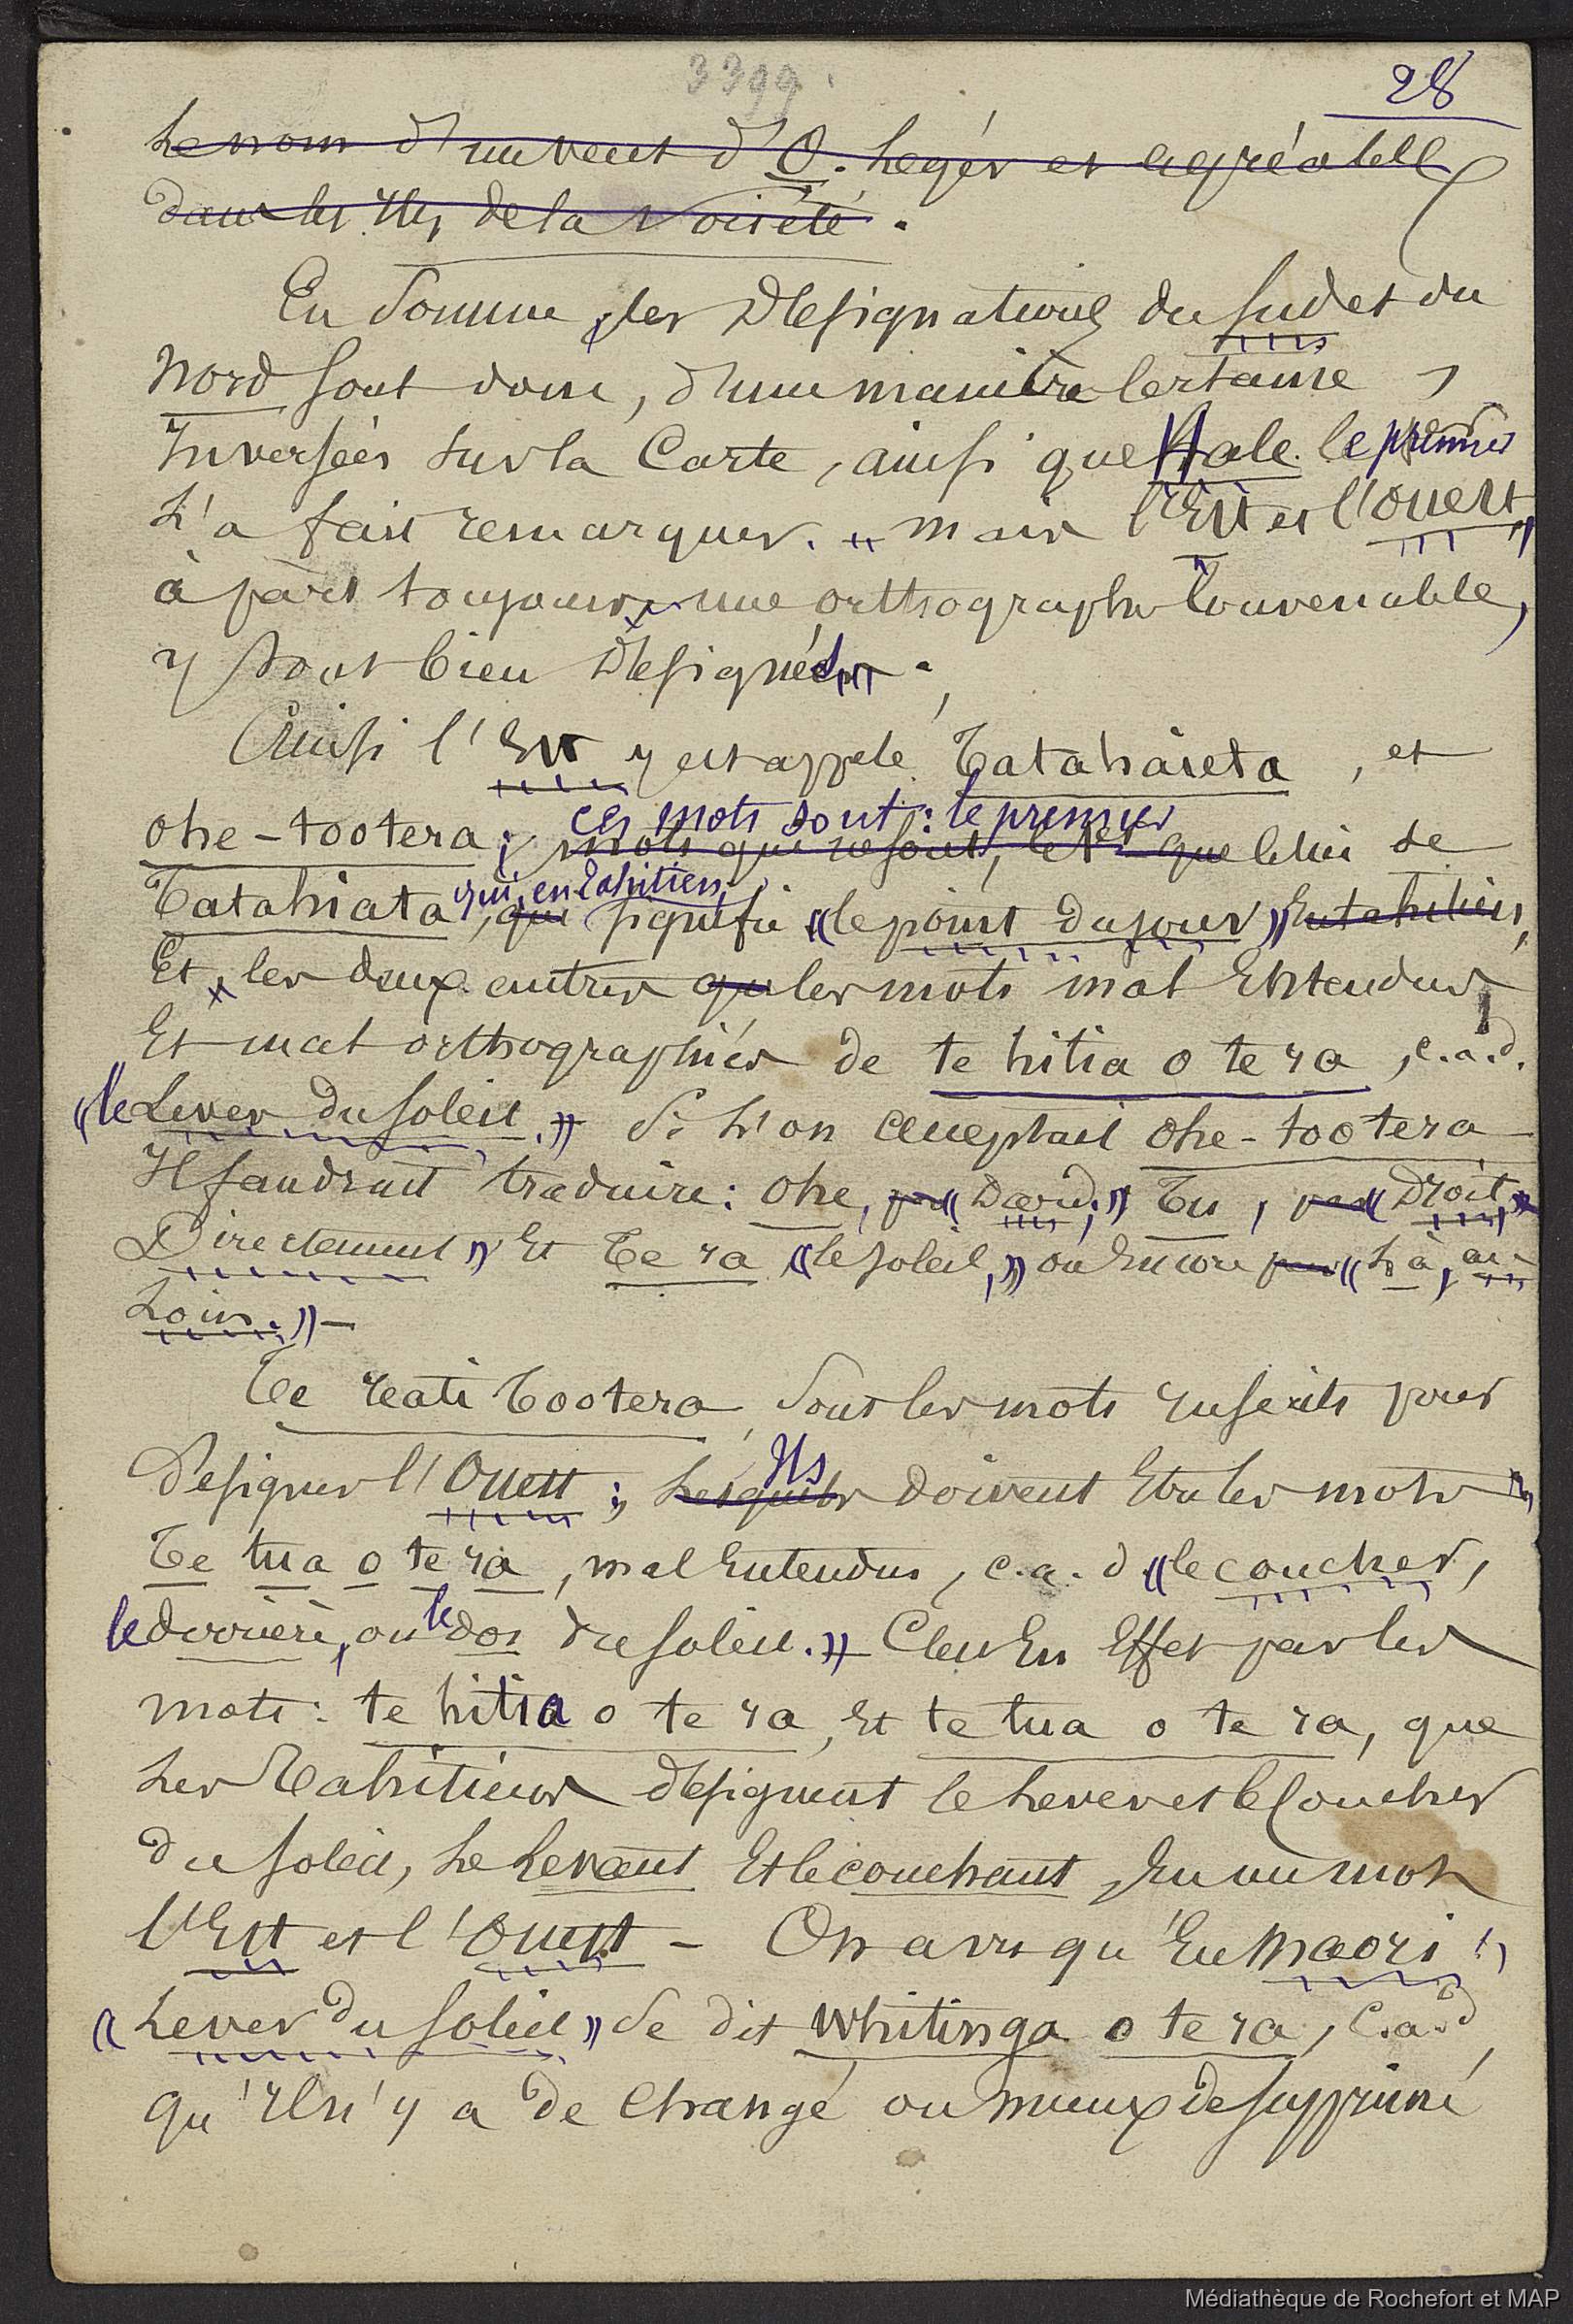 3399.
28
le nom d'un vent d'O. léger et agréable
dans les Iles de la Société.
En somme, les désignations du Sud et du
Nord sont donc, d'une manière certaine,
inversées sur la Carte, ainsi que Hale le premier
l'a fait remarquer. mais l'Est et l'Ouest,
à part toujours une orthographe convenable,
y sont bien désignés.
Ainsi l'Est y est appelé Tatahaieta, et
ohe-tootera; ces mots sont: le premier
mots qui ne sont, le 1er que celui de
Tatahiata, qui, en Tahitien,
qui signifie «le point du jour» en tahitien,
Et, les deux autres que les mots mal entendus
et mal orthographiés de te hitia o te ra, c.a.d.
«le Lever du soleil.» Si l'on acceptait ohe-tootera
Il faudrait traduire: ohe, par « ; » Tu, par «Droit,
Directement» et Te ra «le soleil,» ou encore par «là, au
Loin.» —
Te reati tootera, sont les mots inscrits pour
désigner l'Ouest; Ils
lesquels doivent être les mots
Te tua o te ra, mal entendus, c.a.d «le coucher,
le derrière, ou le dos du soleil.» C'est en effet par les
mots: te hitia o te ra, et te tua o te ra, que
les Tahitiens désignent le lever et le coucher
du soleil, le Levant et le couchant, en un mot
l'Est et l'Ouest — On a vu qu'en Maori
«Lever du soleil» se dit Whitinga o te ra, c.a.d
qu'il n'y a de changé ou mieux de supprimé
Médiathèque de Rochefort et MAP